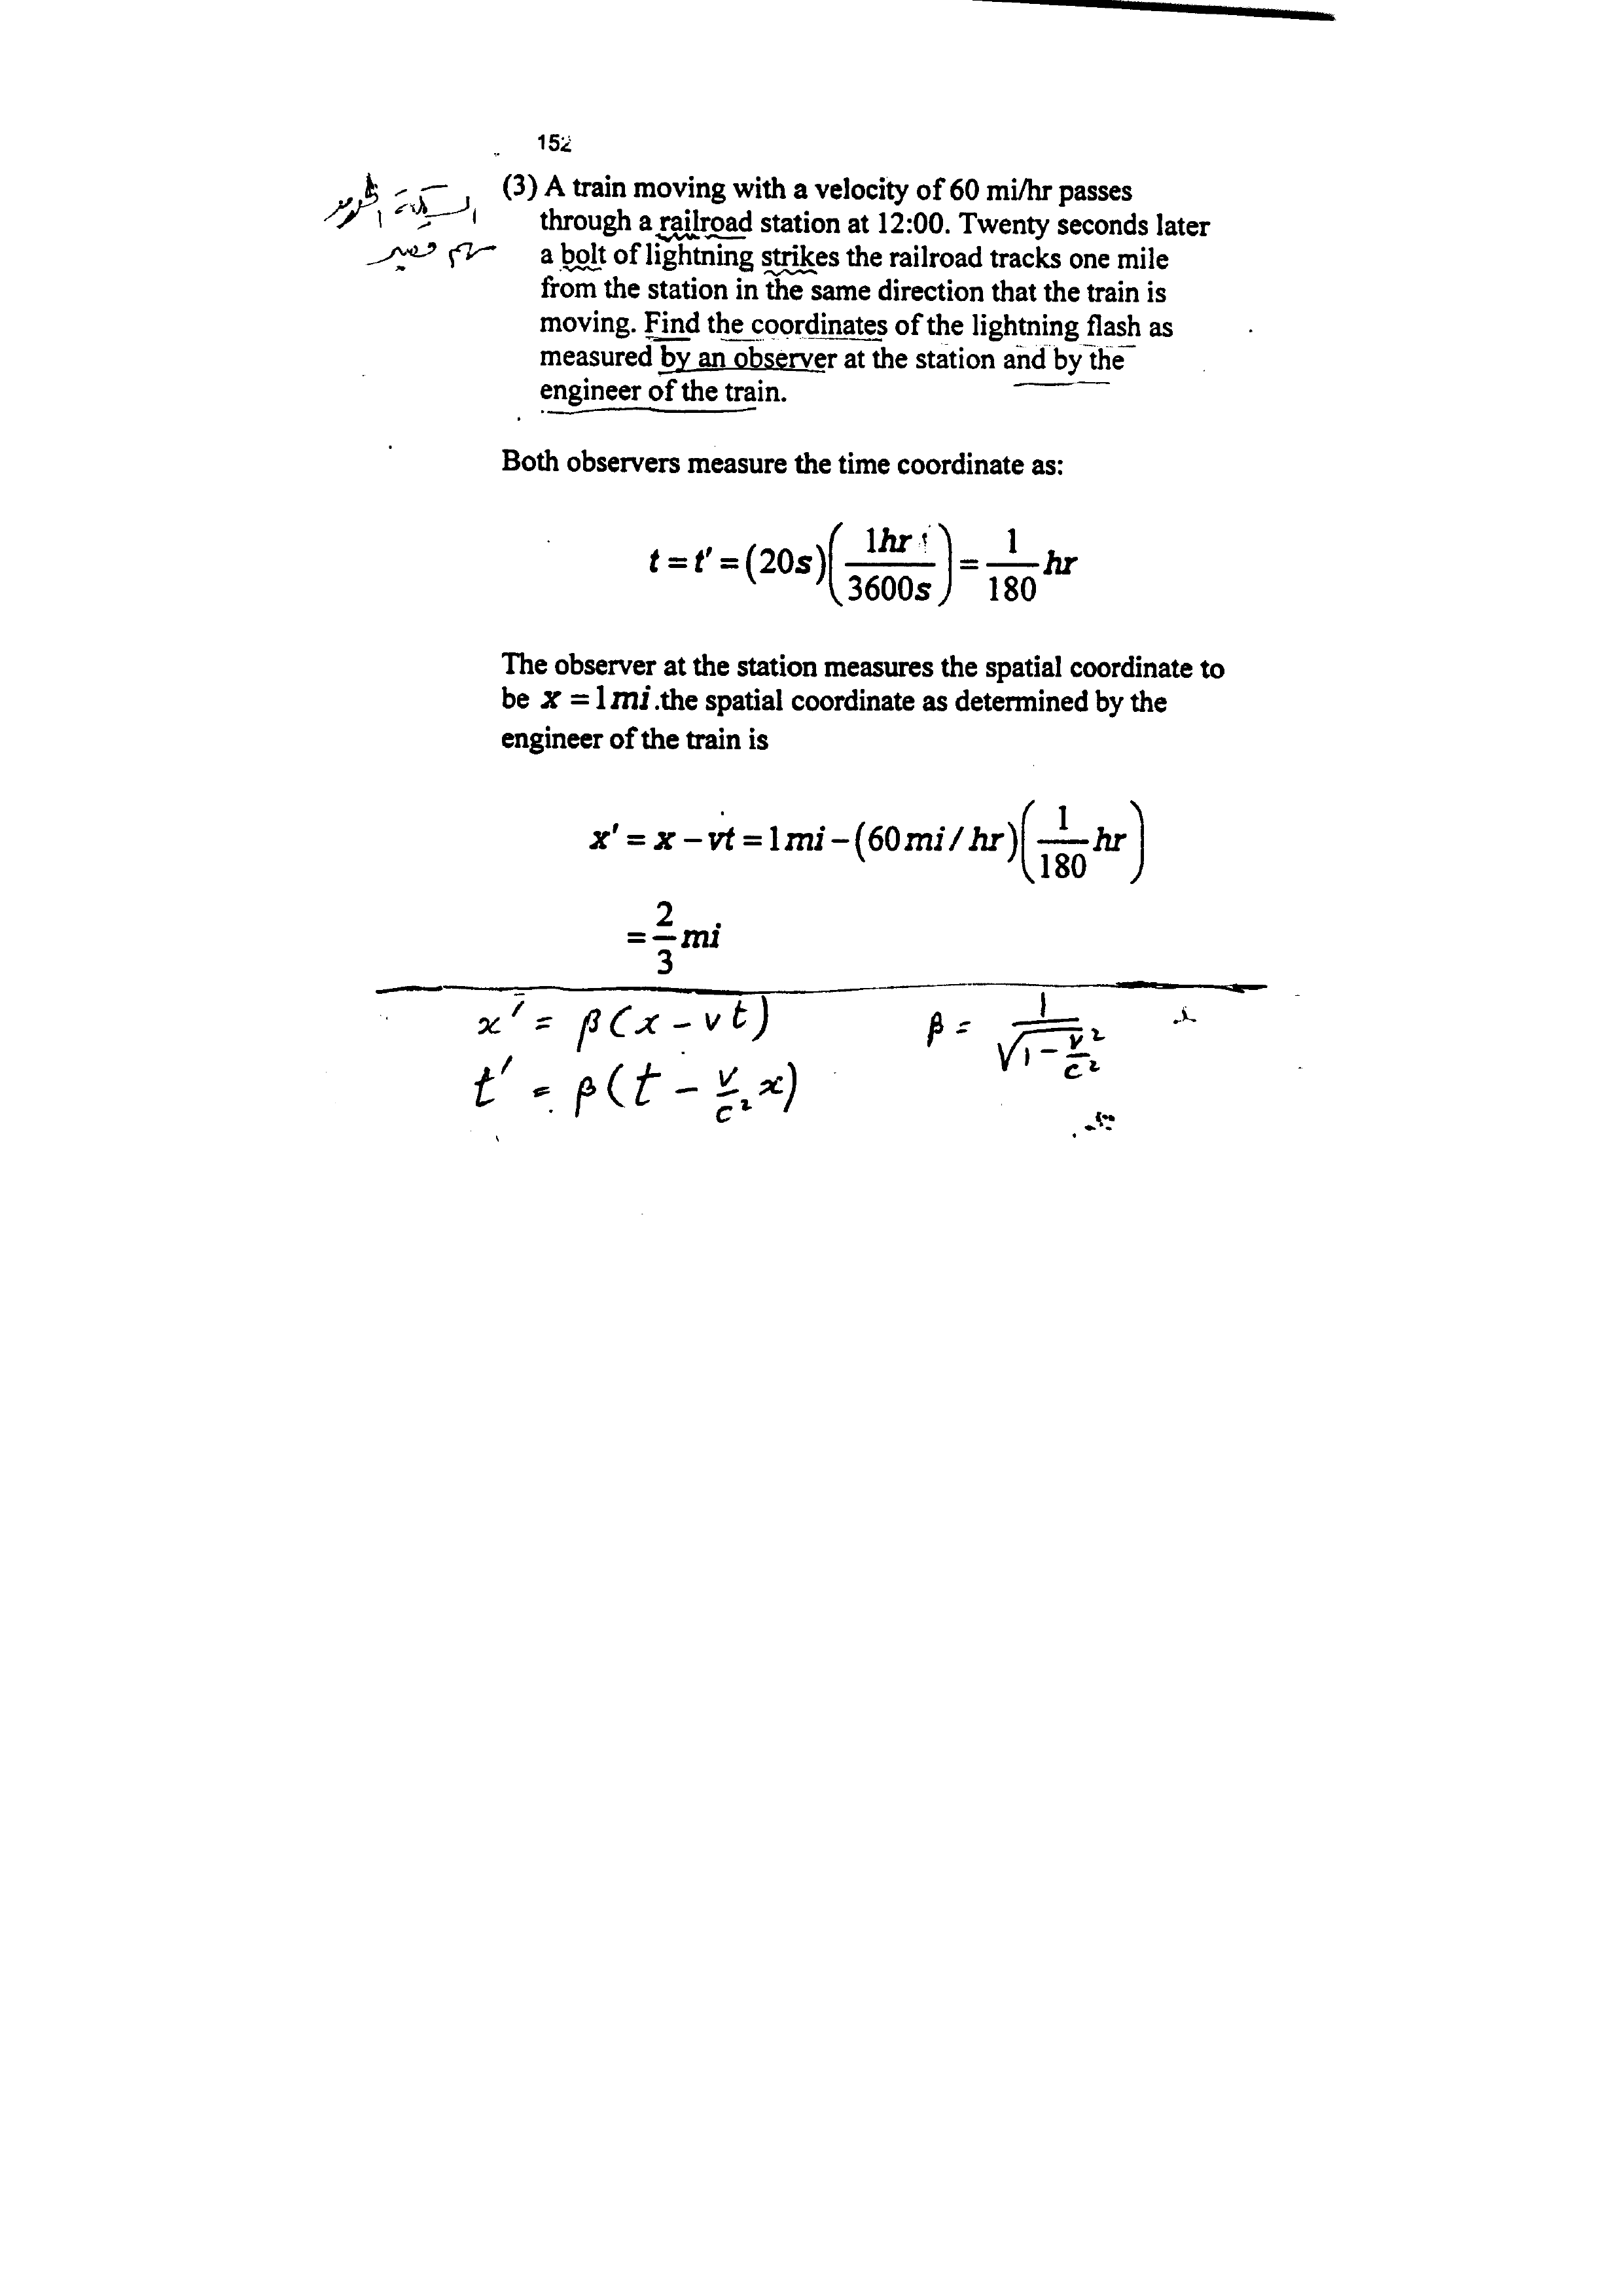 152
(3) A train moving with a velocity of 60 mi/hr passes
through a railroad station at 12:00. Twenty seconds later
a bolt of lightning strikes the railroad tracks one mile
from the station in the same direction that the train is
moving. Find the coordinates of the lightning flash as
measured by an observer at the station and by the
engineer of the train.
السكة الحديد
سهم قصير
Both observers measure the time coordinate as:
t = t' = (20s)(1hr/3600s) = 1/180 hr
The observer at the station measures the spatial coordinate to
be x = 1mi .the spatial coordinate as determined by the
engineer of the train is
x' = x − vt = 1mi − (60mi/hr)(1/180 hr)
= 2/3 mi
x' = β(x − vt) β = 1/√(1 − v²/c²)
t' = β(t − v/c² x)